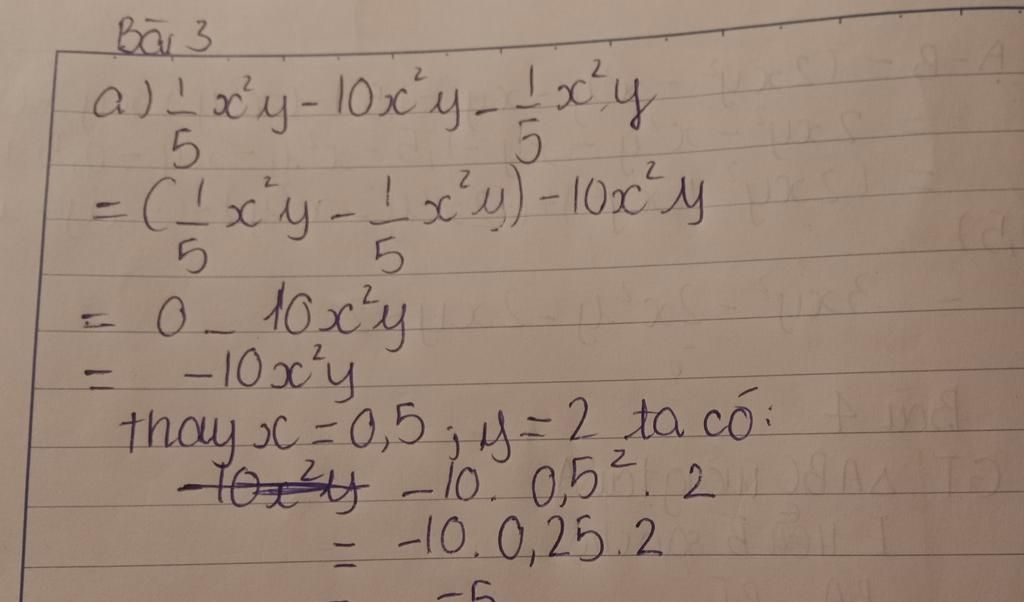 Bài 3
a) 1/5 x²y - 10x²y - 1/5 x²y
= (1/5 x²y - 1/5 x²y) - 10x²y
= 0 - 10x²y
= -10x²y
thay x = 0,5 ; y = 2 ta có:
-10x²y -10. 0,5². 2
= -10. 0,25. 2
= -5